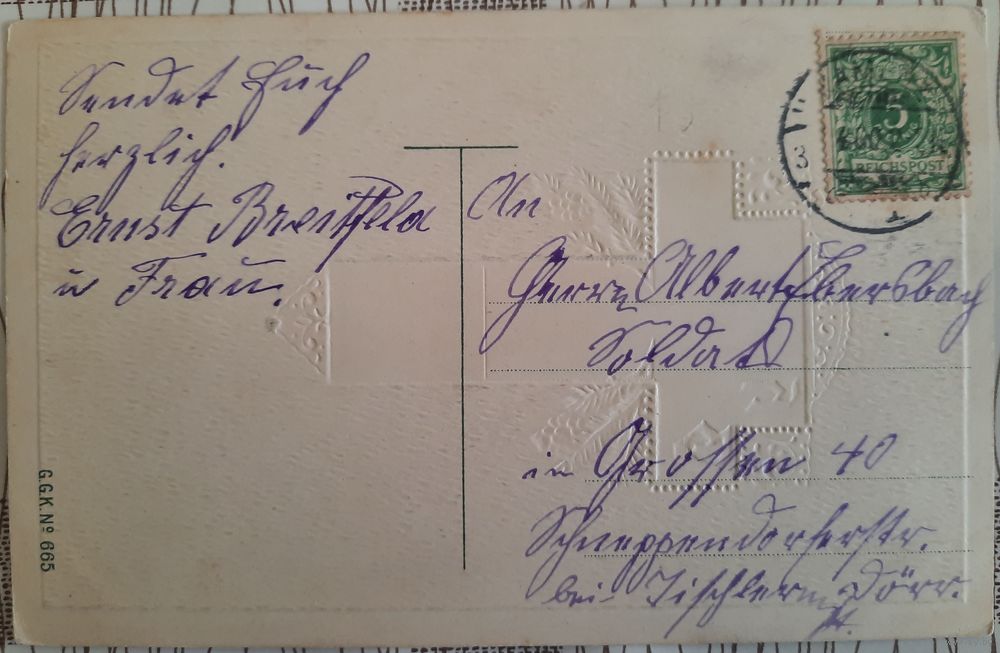 Sendet Euch
herzlich.
Ernst Breitfeld
u Frau.
An
Herrn Albert Ebersbach
Soldat
in Grossen 40
Schneppendorferstr.
bei Tischlerm Dörr.
5
REICHSPOST
G.G.K. Nº 665